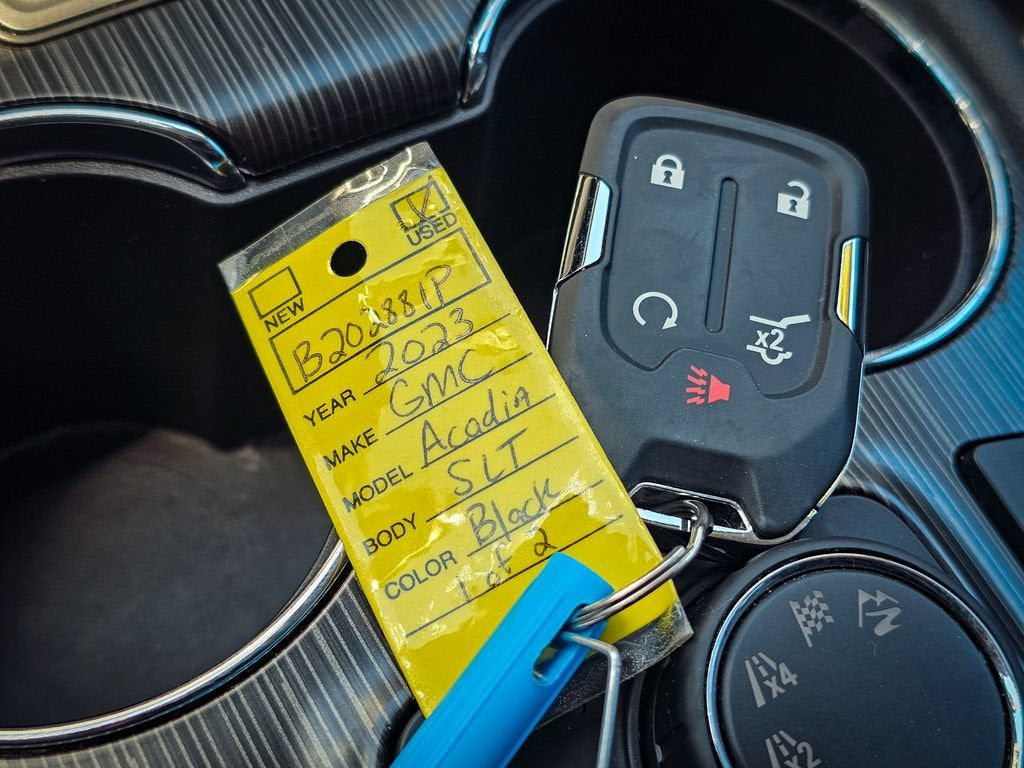 USED
NEW
B202881P
YEAR 2023
MAKE GMC
MODEL Acadia
BODY SLT
COLOR Black
1 of 2
x2
x4
x2